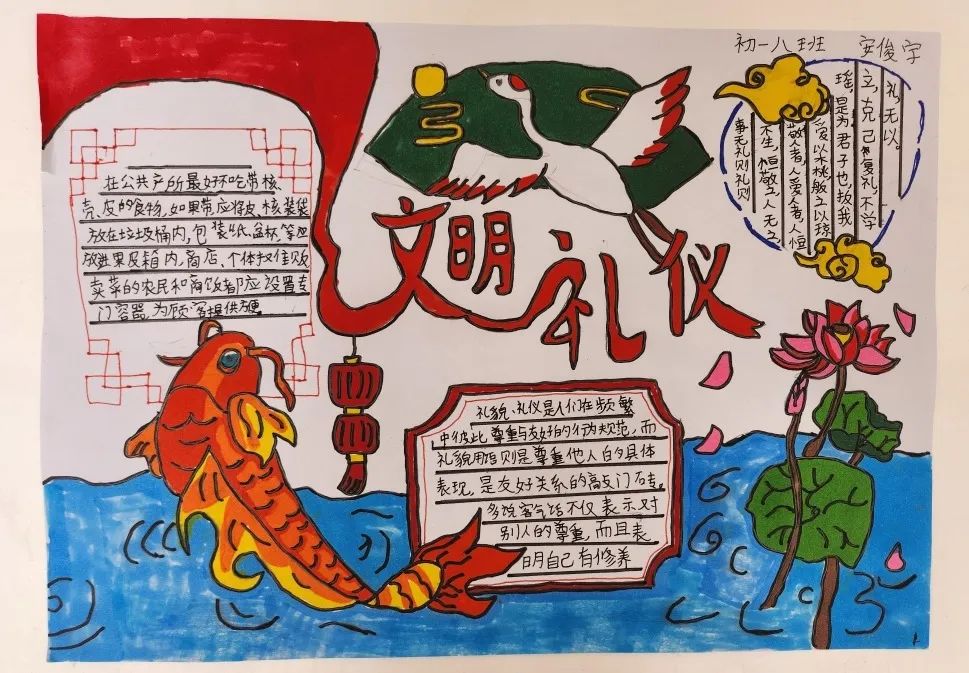 文明礼仪
初一八班 安俊宇
礼，无以。
立，克己复礼，不学
瑶，是为君子也，故我
爱以木桃般立以琼
敬人者，人爱者，人恒
不生，恒敬立人无之
事无礼则礼则
在公共产所最好不吃带核、
壳、皮的食物，如果带应将皮、核装袋
放在垃圾桶内，包装纸、盆杯、等
放进果皮箱内，商店、个体佳贩
卖菜的农民和商贩都应设置专
门容器，为顾客提供方便
礼貌、礼仪是人们在频繁
中彼此尊重与友好的行为规范，而
礼貌用语则是尊重他人的具体
表现，是友好关系的敲门砖。
多说客气话不仅表示对
别人的尊重，而且表
明自己有修养